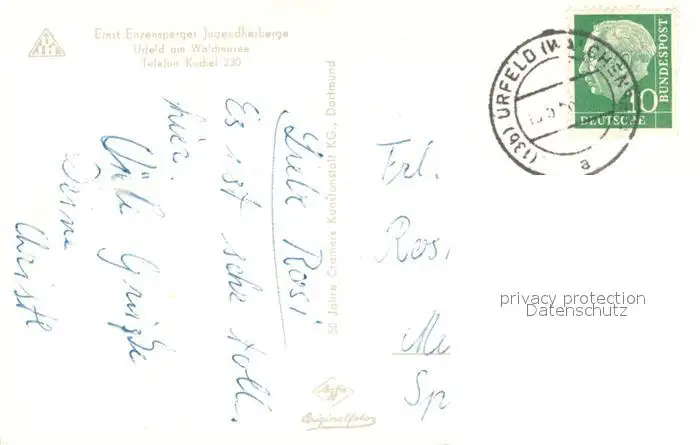 Ernst Enzensperger Jugendherberge
Urfeld am Walchensee
Telefon Kochel 230
Liebe Rosi
Es ist sehr toll.
hier.
Viele Grüße
Deine
Christl
50 Jahre Cramers Kunstanstalt KG., Dortmund
Agfa
Originalfoto
(13b) URFELD (WALCHEN
a
10
DEUTSCHE
BUNDESPOST
Frl.
Rosi
Me
Sp
privacy protection
Datenschutz